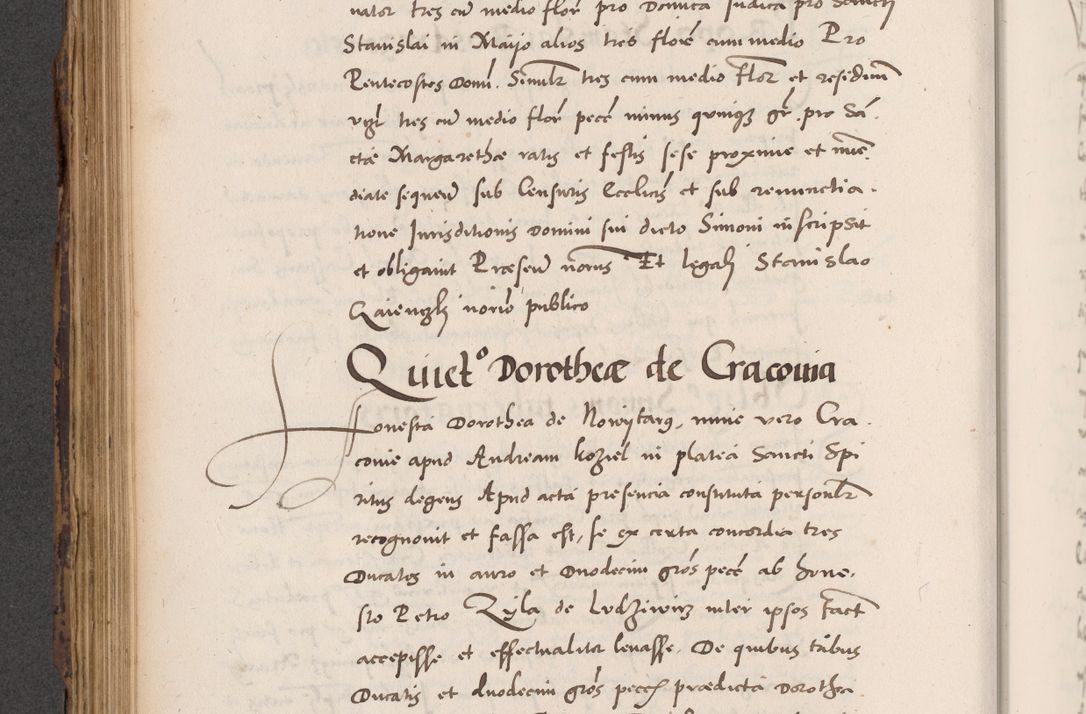 nator tres cū medio flor̄ pro Domīca Judica pro Sancti
Stanislai in Maijo alios tres florē cum medio Pro
Pentecostes Domī. Simil̄r tres cum medio flor̄ et residuū
vtz̄l tres cū medio flor̄ pecē minus quīnq̨ gr̄. pro Sā
ctæ Margarethæ ratis et festis sese proxime et īmē
diate sequeñ sub Censuris Ecclicis et sub renunctia
tione Jurisditionis Domini sui dicto Simoni inscripsit
et obligauit Præseñ nōrius Et legalj Stanislao
Gaienczkj norio publico
Quiet⁰ Dorotheæ de Cracouia
Honesta Dorothea de Nowijtarg, nunc vero Cra
couie apud Andream Koziel in platea Sancti Spi
ritus degens Apud acta presencia constituta personl̄r
recognouit et fassa est, se ex certa concordia tres
Ducatos in auro et Duodecim grōs pecē ab hone,
sto Petro Zyla de Lvdziwirz inter ipsos fact̄
accepisse et effectualiter leuasse. De quibus tribus
Ducatis et duodecim grōs pecē prædicta Dorothea